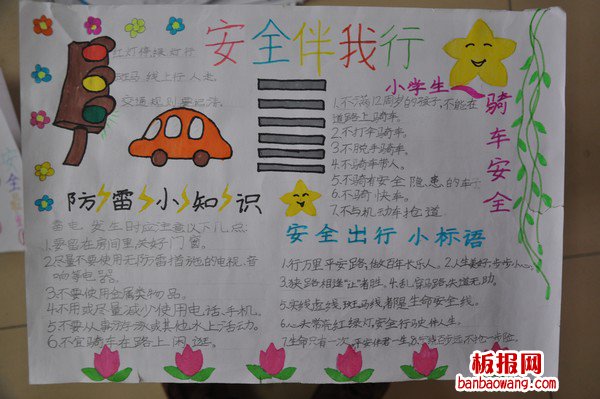 安全伴我行
红灯停绿灯行
斑马线上行人走
交通规则要记清
小学生骑车安全
1.不满12周岁的孩子,不能在
道路上骑车.
2.不打伞骑车.
3.不脱手骑车.
4.不骑车带人.
5.不骑有安全隐患的车子
6.不骑快车.
7.不与机动车抢道
防雷小知识
雷电发生时应注意以下几点
1.要留在房间里,关好门窗.
2.尽量不要使用无防雷措施的电视、音
响等电器.
3.不要使用金属类物品.
4.不用或尽量减少使用电话、手机.
5.不要从事游泳或其他水上活动.
6.不宜骑车在路上闲逛.
安全出行小标语
1.行万里平安路,做百年长乐人. 2.人生美好,步步小心.
3.狭路相逢"让"者胜. 4.乱穿马路,失道无助.
5.实线虚线斑马线,都是生命安全线.
6.心头常亮红绿灯,安全行驶伴人生.
7.生命只有一次,平安伴君一生
板报网
banbaowang.com